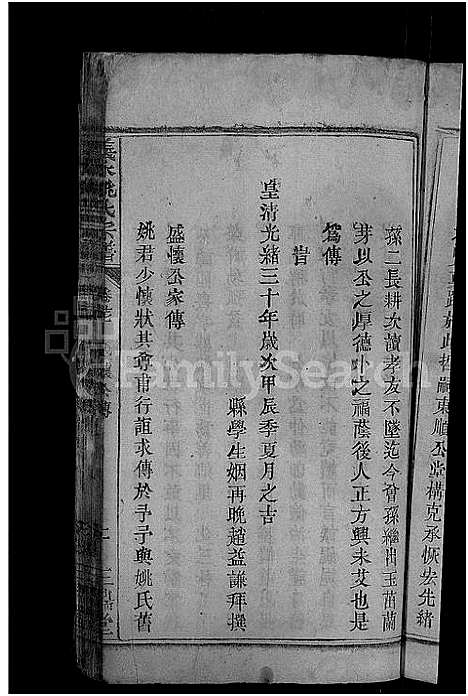 東順公堂構克承恢宏先緒
孫二長耕次讀孝友不墜迄今曾孫繼出玉茁蘭
芽以公之厚德卜之福蔭後人正方興未艾也是
為傳
旹
皇清光緒三十年歲次甲辰季夏月之吉
縣學生姻再晚趙益謙拜撰
盛懷公家傳
姚君少懷狀其尊甫行誼求傳於予予與姚氏舊
姚氏宗譜
FamilySearch